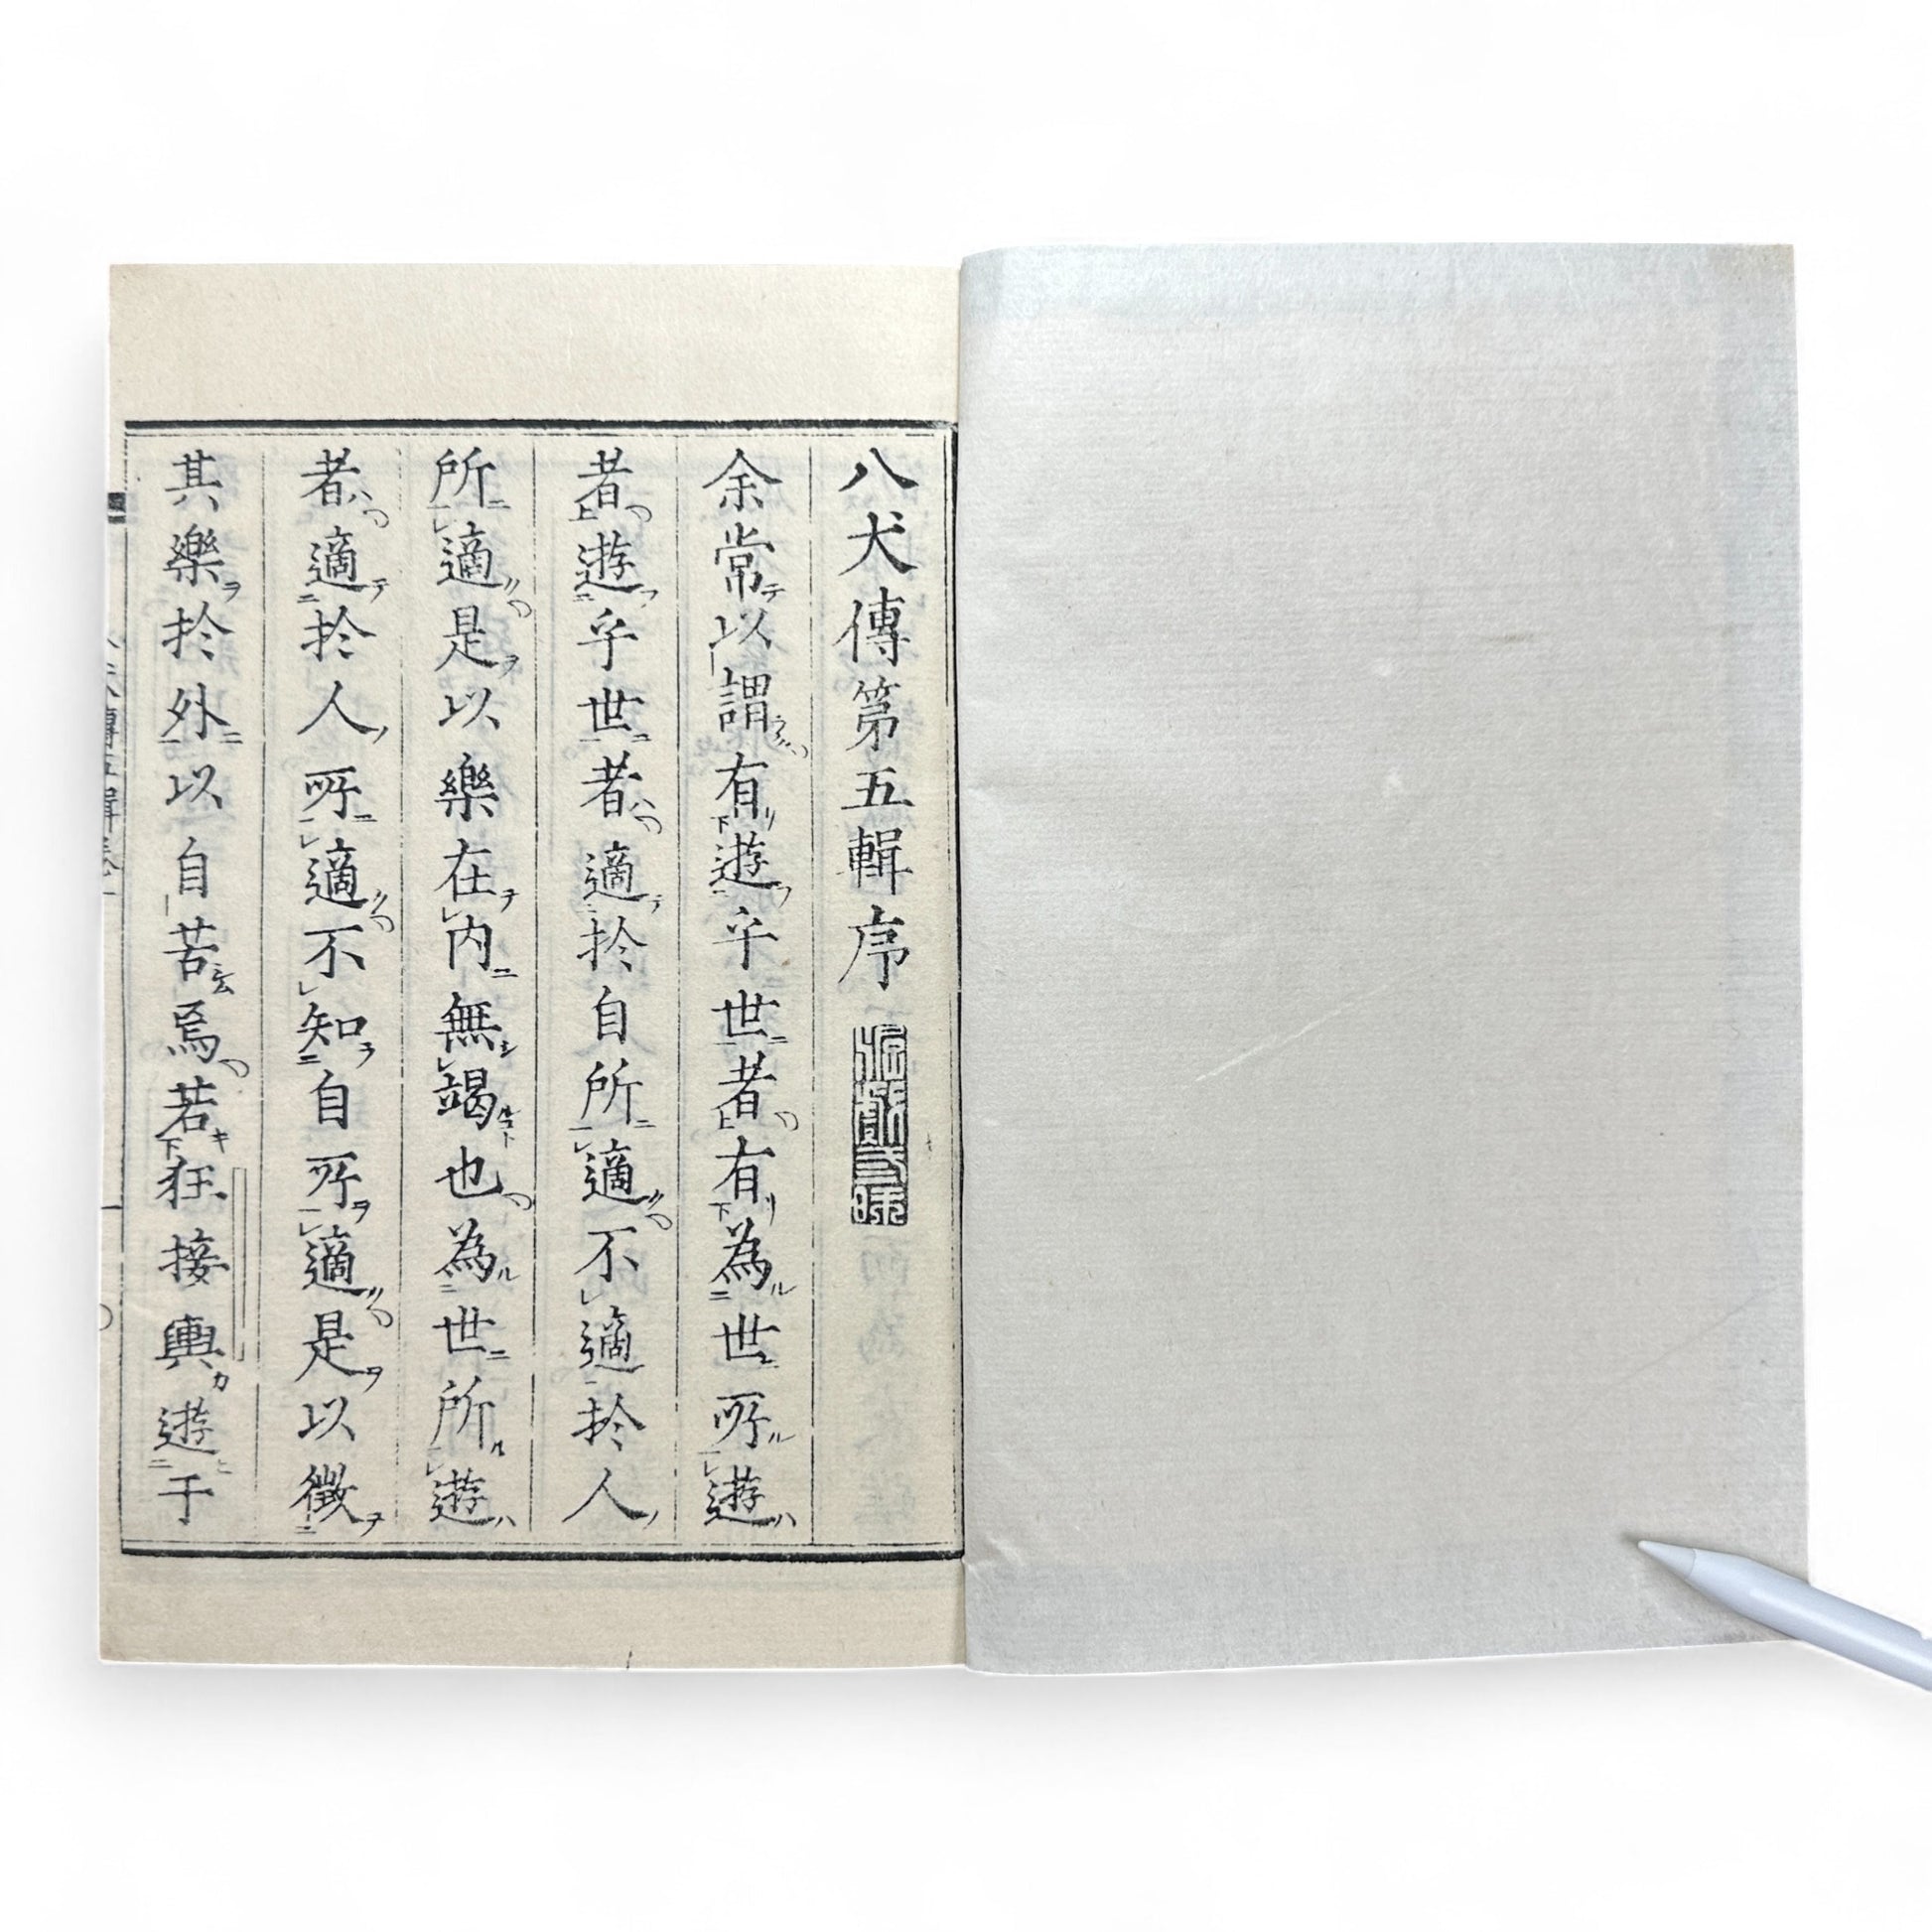 八犬傳第五輯序
余常以謂有遊乎世者有為世所遊
者遊乎世者適於自所適不適於人
所適是以樂在内無竭也為世所遊
者適於人所適不知自所適是以徴
其樂於外以自苦焉若狂接輿遊于